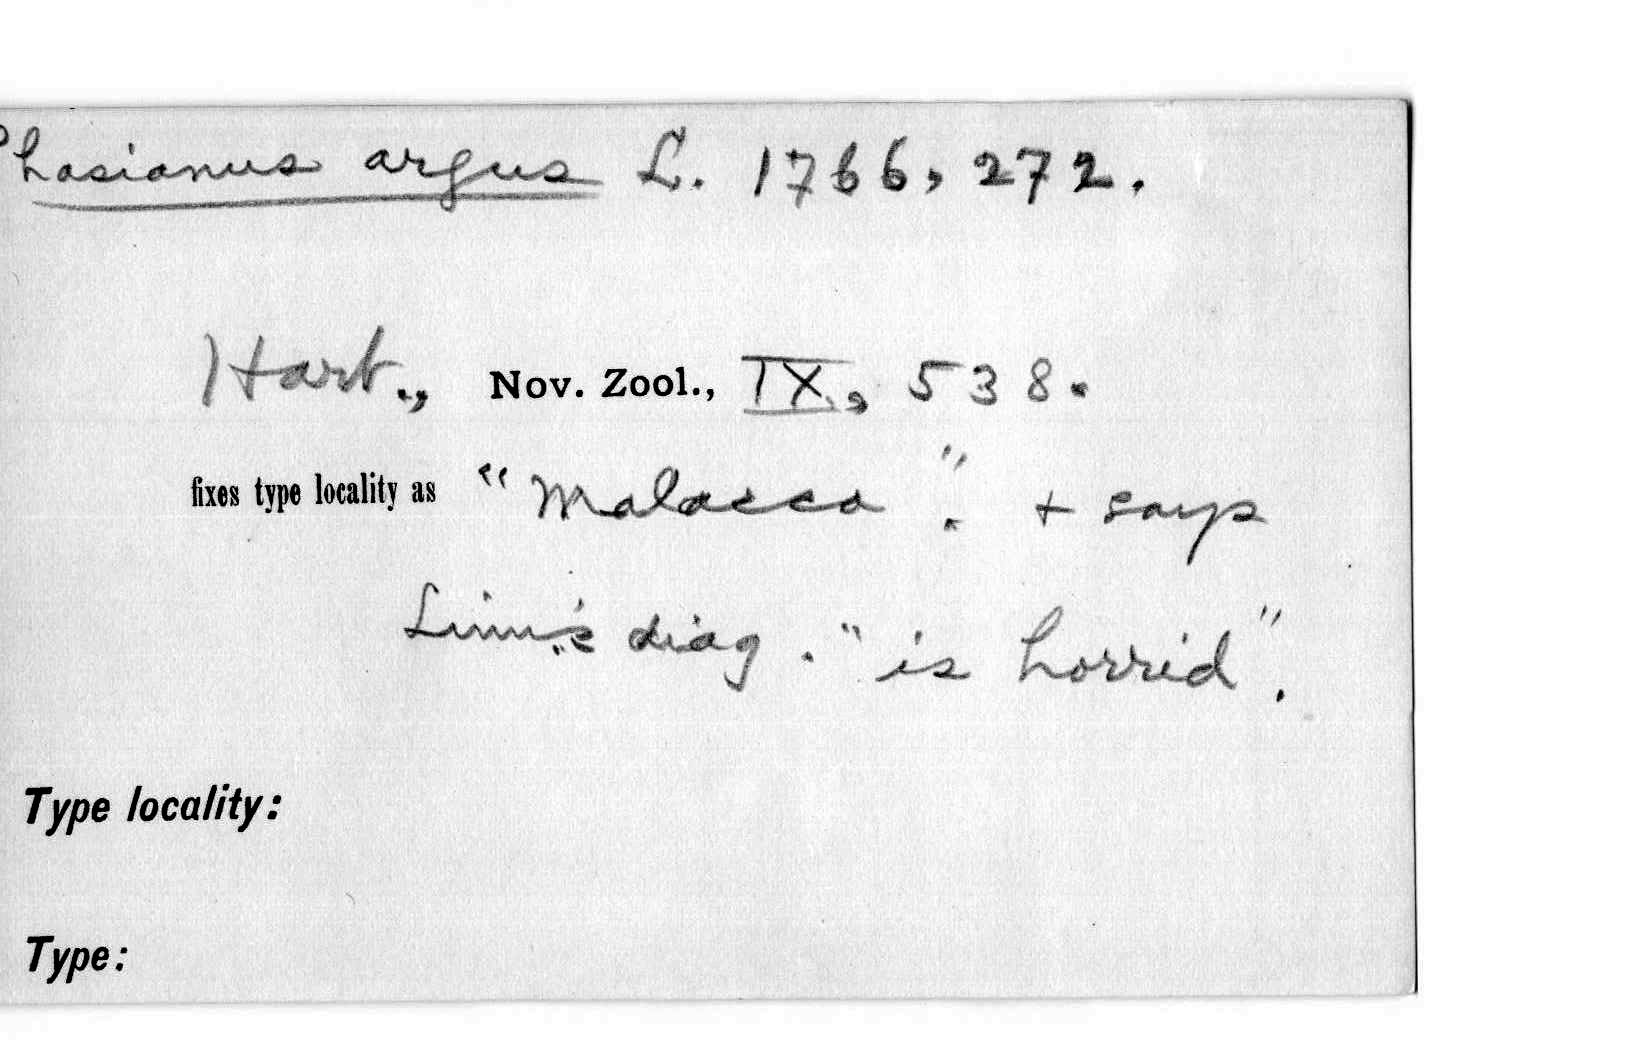 Phasianus argus L. 1766, 272.
Hart., Nov. Zool., IX, 538.
fixes type locality as "Malacca". + says
Linn.'s diag. "is horrid".
Type locality:
Type: